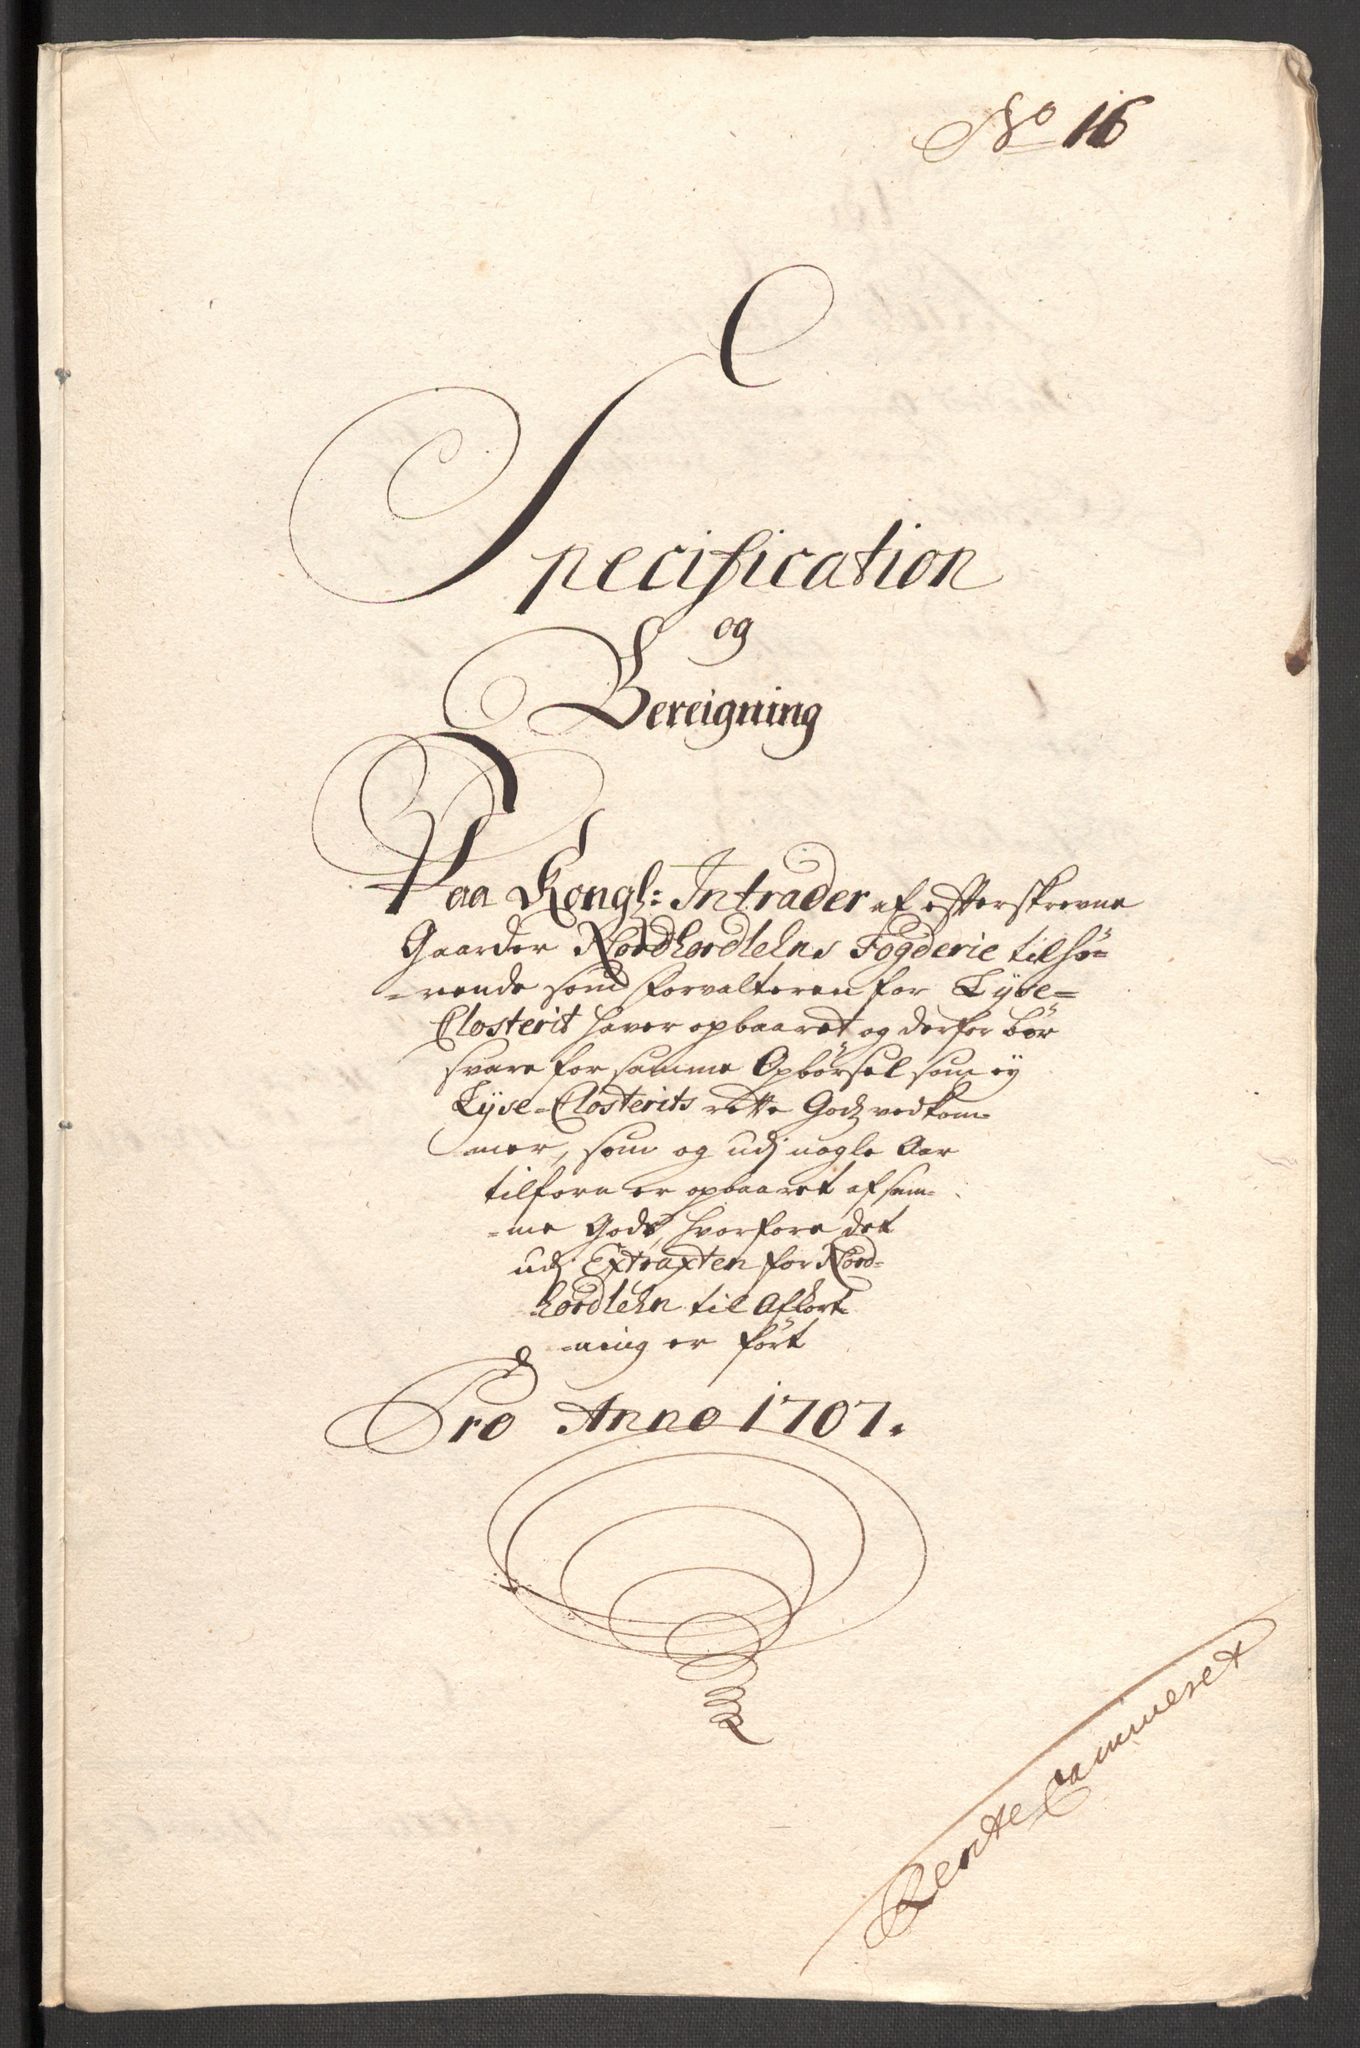 No 16
Specification
og
Bereigning
Paa Kongl: Intrader af efterskrevne
Gaarder Nordhordlehns Fogderie tilhø-
-rende som Forvalteren for Lyse-
Closterit haver opbaaret og derfor bør
svare for samme Opbørsel som ey
Lyse-Closterits rette Godz vedkom-
mer, som og udj nogle Aar
tilforn er opbaaret af sam-
-me Gods, hvorfore det
udj Extraxten for Nord-
hordlehn til Afkort-
-ning er ført
Pro Anno 1707.
Rente Cammeret